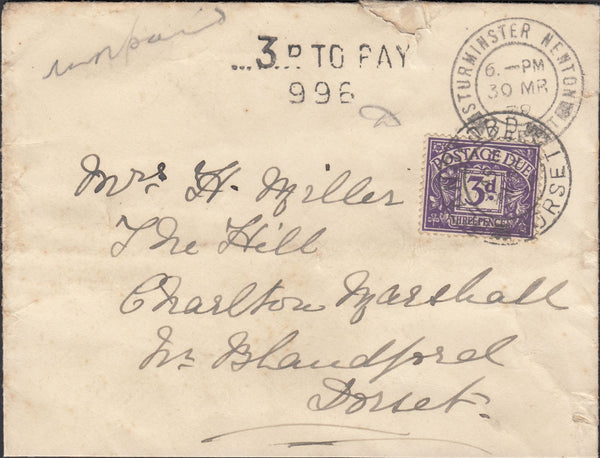 unpaid
3 D TO PAY
996
STURMINSTER NEWTON
6.—PM
30 MR
POSTAGE DUE
3d.
THREE PENCE
Mrs. H. Miller
The Hill
Charlton Marshall
Nr Blandford
Dorset.